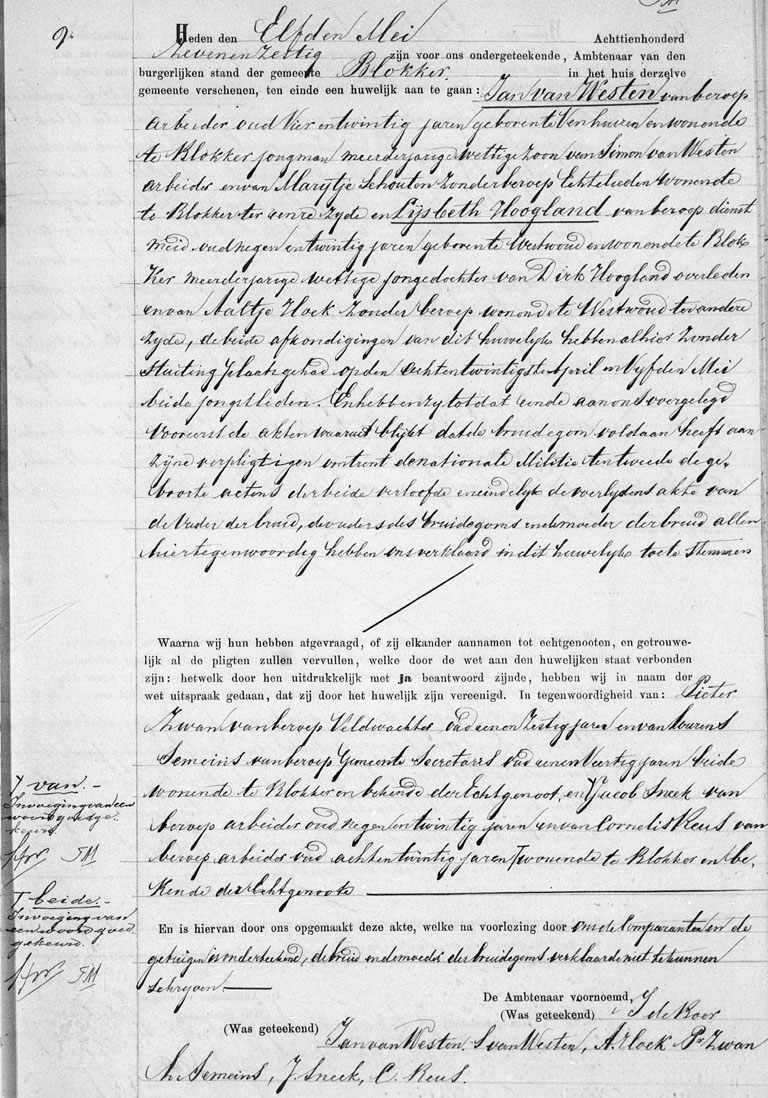 9.
Heden den Elfden Mei Achttienhonderd
Zevenenzestig zijn voor ons ondergeteekende, Ambtenaar van den
burgerlijken stand der gemeente Blokker. in het huis derzelve
gemeente verschenen, ten einde een huwelijk aan te gaan: Jan van Westen van beroep
arbeider oud Vier entwintig jaren geboren te Venhuizen en wonende
te Blokker jongman meerderjarige wettige zoon van Simon van Westen
arbeider en van Marytje Schouten zonder beroep Echtelieden wonende
te Blokker ter eenre zyde en Lijsbeth Hoogland van beroep dienst
meid oud negen entwintig jaren geboren te Westwoud en wonende te Blok
ker meerderjarige wettige jongedochter van Dirk Hoogland overleden
en van Aaltje Hoek zonder beroep wonende te Westwoud ter andere
zyde, de beide afkondigingen van dit huwelijk hebben alhier zonder
stuiting plaats gehad op den achtentwintigste April en Vyfden Mei
beide jongstleden. En hebben zy tot dat einde aan ons overgelegd
Vooreerst de akten waaruit blijkt dat de bruidegom voldaan heeft aan
zyne verpligtigen omtrent de nationale Militie ten tweede de ge-
boorte actens der beide verloofde en eindelyk de overlydens akte van
de vader der bruid, de ouders des bruidegoms en de moeder der bruid allen
hier tegenwoordig hebben ons verklaard in dit huwelijk toe te stemmen
Waarna wij hun hebben afgevraagd, of zij elkander aannamen tot echtgenooten, en getrouwe-
lijk al de pligten zullen vervullen, welke door de wet aan den huwelijken staat verbonden
zijn: hetwelk door hen uitdrukkelijk met ja beantwoord zijnde, hebben wij in naam der
wet uitspraak gedaan, dat zij door het huwelijk zijn vereenigd. In tegenwoordigheid van: Pieter
Zwan van beroep Veldwachter oud een en Zestig jaren en van Lourens
Semeins van beroep Gemeente Secretaris oud een en Veertig jaren beide
wonende te Blokker en bekende der Echtgenoot, en Jacob Sneek van
beroep arbeider oud negen entwintig jaren en van Cornelis Reus van
beroep arbeider oud achtentwintig jaren wonende te Blokker en be-
kende der Echtgenoote
van.-
Invoeging van een
woord goedge-
keurd
SM
beide.-
Invoeging van
een woord goed
gekeurd.
SM
En is hiervan door ons opgemaakt deze akte, welke na voorlezing door ons de Comparanten en de
getuigen is onderteekend, de bruid en de moeder der bruidegoms verklaarde niet te kunnen
schryven.
De Ambtenaar voornoemd,
(Was geteekend) J de Boer
(Was geteekend) Jan van Westen. S van Westen, A. Hoek Pr Zwan
Semeins, J. Sneek, C. Reus.